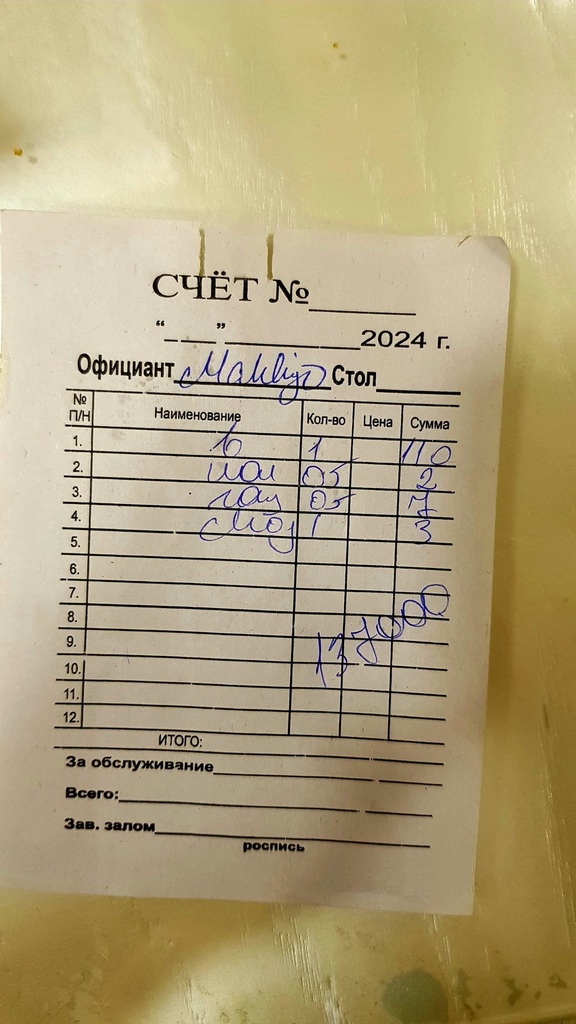 СЧЁТ №
“ ” 2024 г.
Официант Стол
№ П/Н Наименование Кол-во Цена Сумма
1. 1 110
2. 05 2
3. 05 7
4. 1 3
5.
6.
7.
8.
9. 137000
10.
11.
12.
ИТОГО:
За обслуживание
Всего:
Зав. залом
роспись